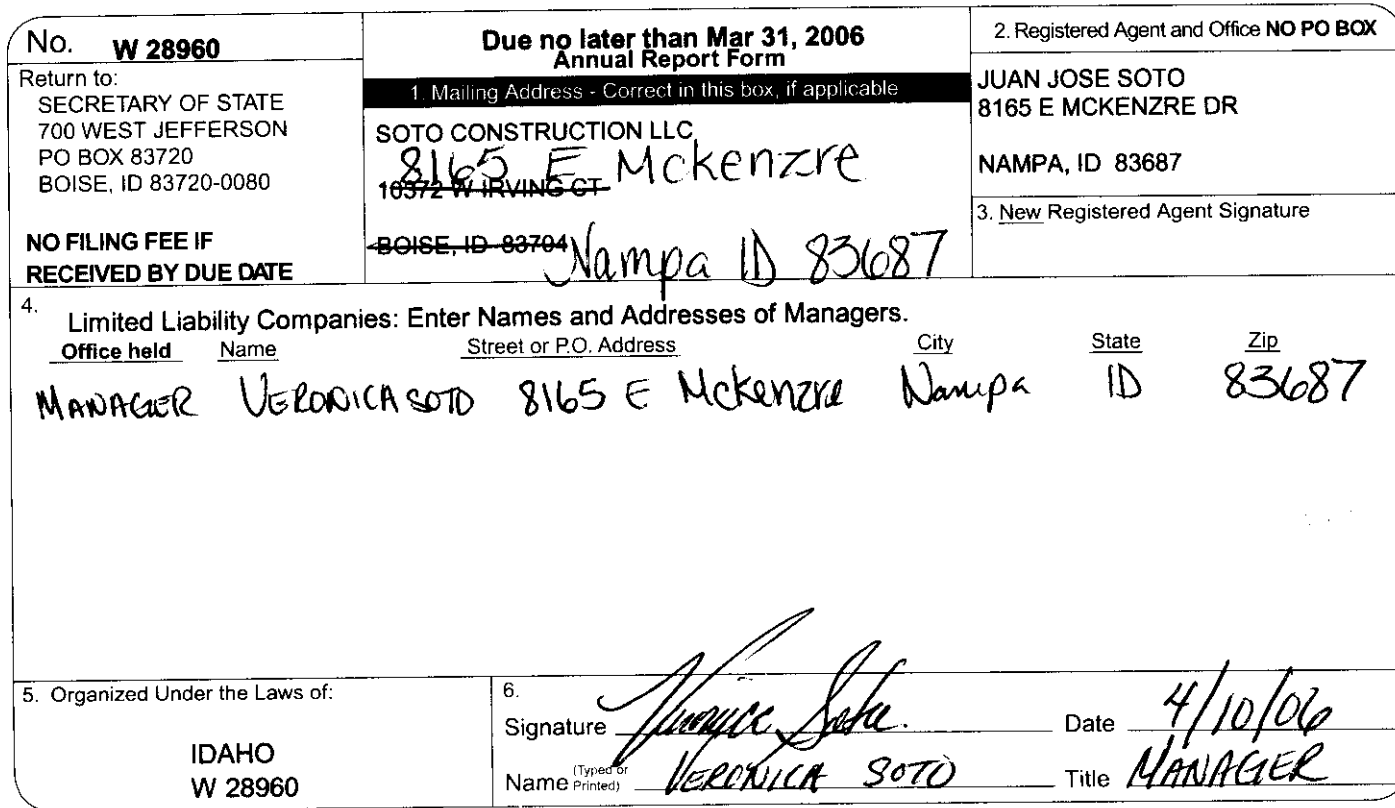 No. W 28960
Return to:
SECRETARY OF STATE
700 WEST JEFFERSON
PO BOX 83720
BOISE, ID 83720-0080
NO FILING FEE IF
RECEIVED BY DUE DATE
Due no later than Mar 31, 2006
Annual Report Form
1. Mailing Address - Correct in this box, if applicable
SOTO CONSTRUCTION LLC
8165 E Mckenzre
10372 W IRVING CT
BOISE, ID 83704
Nampa ID 83687
2. Registered Agent and Office NO PO BOX
JUAN JOSE SOTO
8165 E MCKENZRE DR
NAMPA, ID 83687
3. New Registered Agent Signature
4.
Limited Liability Companies: Enter Names and Addresses of Managers.
Office held Name Street or P.O. Address City State Zip
MANAGER VERONICA SOTO 8165 E Mckenzre Nampa ID 83687
5. Organized Under the Laws of:
IDAHO
W 28960
6.
Signature Veronica Soto Date 4/10/06
Name (Typed or Printed) VERONICA SOTO Title MANAGER